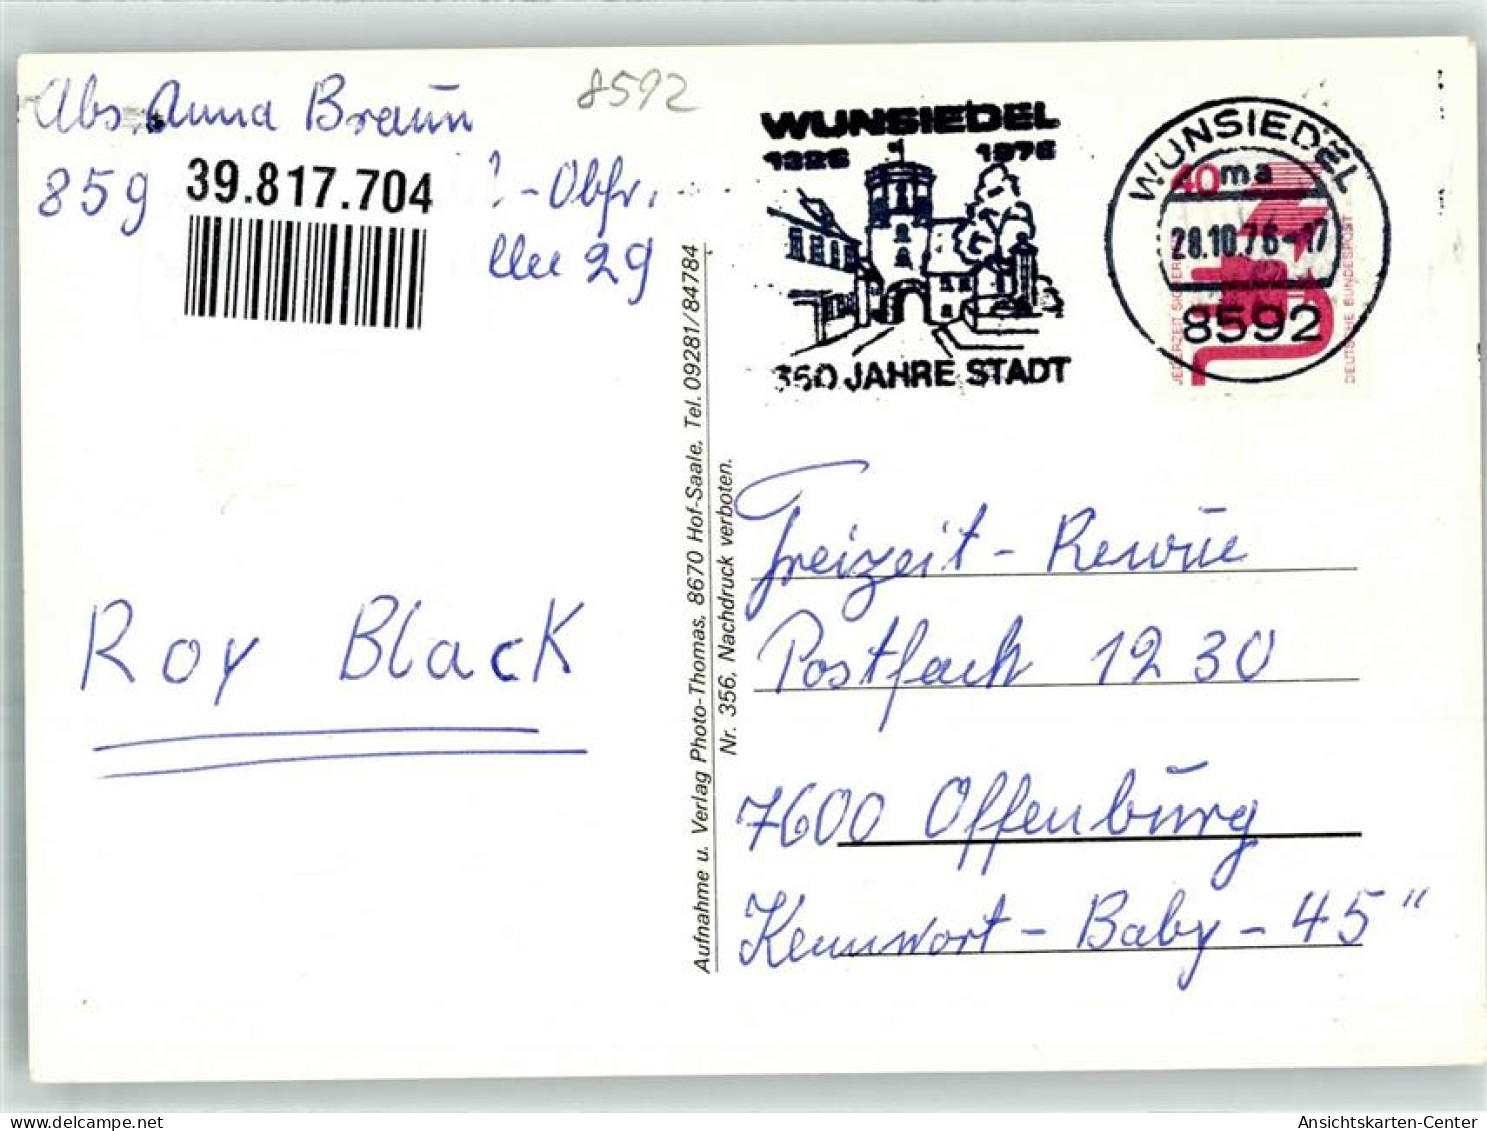 Abs. Anna Braun
8592
859
39.817.704
-Obfr.
29
WUNSIEDEL
1326 1976
350 JAHRE STADT
WUNSIEDEL
40
ma
28.10.76-17
8592
JEDERZEIT SICHERHEIT
DEUTSCHE BUNDESPOST
Aufnahme u. Verlag Photo-Thomas, 8670 Hof-Saale, Tel. 09281/84784
Nr. 356, Nachdruck verboten.
Freizeit - Revue
Postfach 1230
7600 Offenburg
Kennwort - Baby - 45"
Roy Black
oldthing.de
Ansichtskarten-Center